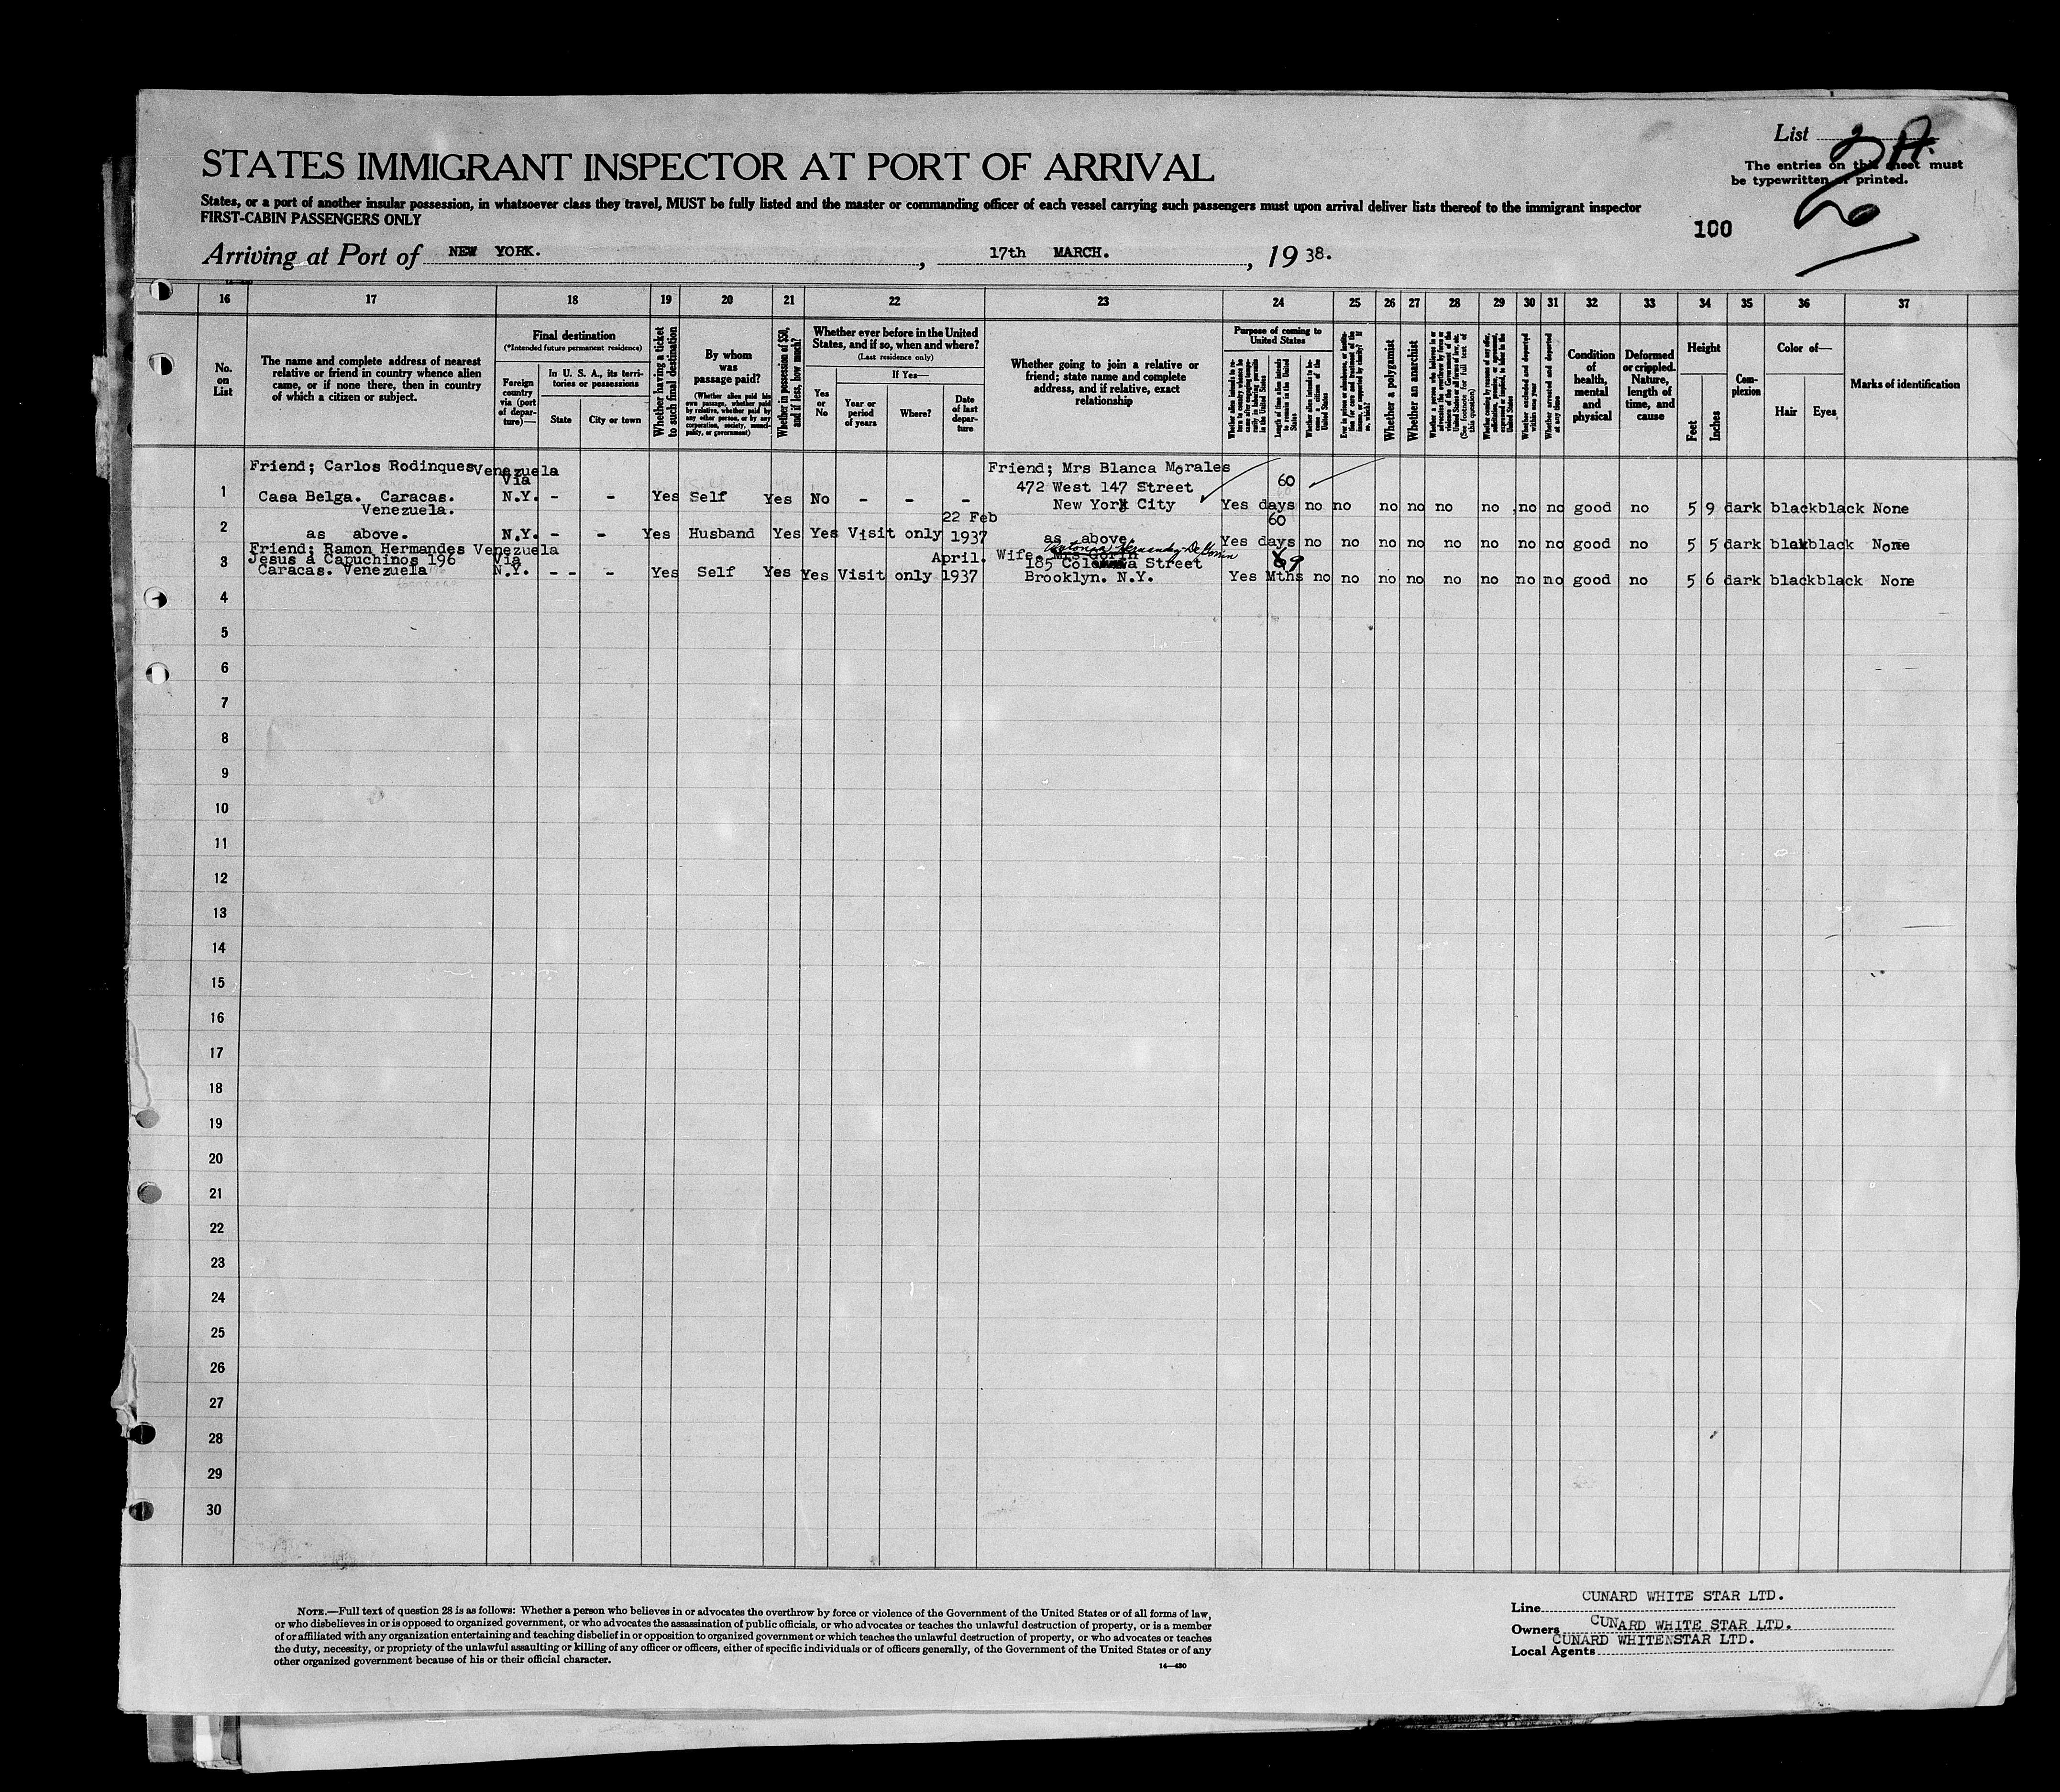 List 2 A.
The entries on this sheet must
be typewritten or printed.
STATES IMMIGRANT INSPECTOR AT PORT OF ARRIVAL
States, or a port of another insular possession, in whatsoever class they travel, MUST be fully listed and the master or commanding officer of each vessel carrying such passengers must upon arrival deliver lists thereof to the immigrant inspector
FIRST-CABIN PASSENGERS ONLY
100
Arriving at Port of NEW YORK. , 17th MARCH. , 19 38.
16 17 18 19 20 21 22 23 24 25 26 27 28 29 30 31 32 33 34 35 36 37
No. on List
The name and complete address of nearest relative or friend in country whence alien came, or if none there, then in country of which a citizen or subject.
Final destination
(*Intended future permanent residence)
Foreign country via (port of departure)—
In U. S. A., its territories or possessions
State City or town
Whether having a ticket to such final destination
By whom was passage paid?
(Whether alien paid his own passage, whether paid by relative, whether paid by any other person, or by any corporation, society, municipality, or government)
Whether in possession of $50, and if less, how much?
Whether ever before in the United States, and if so, when and where?
(Last residence only)
Yes or No
If Yes—
Year or period of years
Where?
Date of last departure
Whether going to join a relative or friend; state name and complete address, and if relative, exact relationship
Purpose of coming to United States
Length of time alien intends to remain in the United States
Whether alien intends to become a citizen of the United States
Whether a polygamist
Whether an anarchist
(See footnote for full text of this question)
Whether arrested and deported at any time
Condition of health, mental and physical
Deformed or crippled. Nature, length of time, and cause
Height
Feet Inches
Complexion
Color of—
Hair Eyes
Marks of identification
Friend; Carlos Rodinques Venezuela Friend; Mrs Blanca Morales
Via 472 West 147 Street 60
1 Casa Belga. Caracas. N.Y. - - Yes Self Yes No - - - New York City Yes days no no no no no no no no good no 5 9 dark black black None
Venezuela.
22 Feb 60
2 as above. N.Y. - - Yes Husband Yes Yes Visit only 1937 as above Yes days no no no no no no no no good no 5 5 dark black black None
Friend; Ramon Hermandes Venezuela
3 Jesus a Capuchinos 196 Via April. Wife. Mrs Gorin
185 Street 9
Caracas. Venezuela N.Y. - - - Yes Self Yes Yes Visit only 1937 Brooklyn. N.Y. Yes Mths no no no no no no no no good no 5 6 dark black black None
4
5
6
7
8
9
10
11
12
13
14
15
16
17
18
19
20
21
22
23
24
25
26
27
28
29
30
NOTE.—Full text of question 28 is as follows: Whether a person who believes in or advocates the overthrow by force or violence of the Government of the United States or of all forms of law,
or who disbelieves in or is opposed to organized government, or who advocates the assassination of public officials, or who advocates or teaches the unlawful destruction of property, or is a member
of or affiliated with any organization entertaining and teaching disbelief in or opposition to organized government or which teaches the unlawful destruction of property, or who advocates or teaches
the duty, necessity, or propriety of the unlawful assaulting or killing of any officer or officers, either of specific individuals or of officers generally, of the Government of the United States or of any
other organized government because of his or their official character.
14—480
Line CUNARD WHITE STAR LTD.
Owners CUNARD WHITE STAR LTD.
Local Agents CUNARD WHITENSTAR LTD.